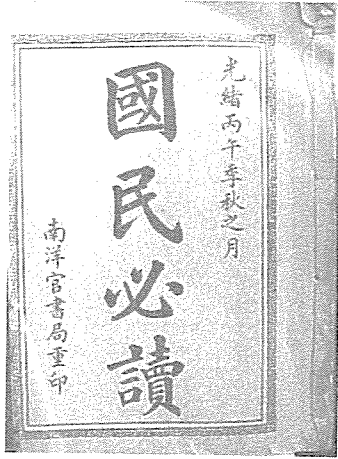 光緒丙午季秋之月
國民必讀
南洋官書局重印